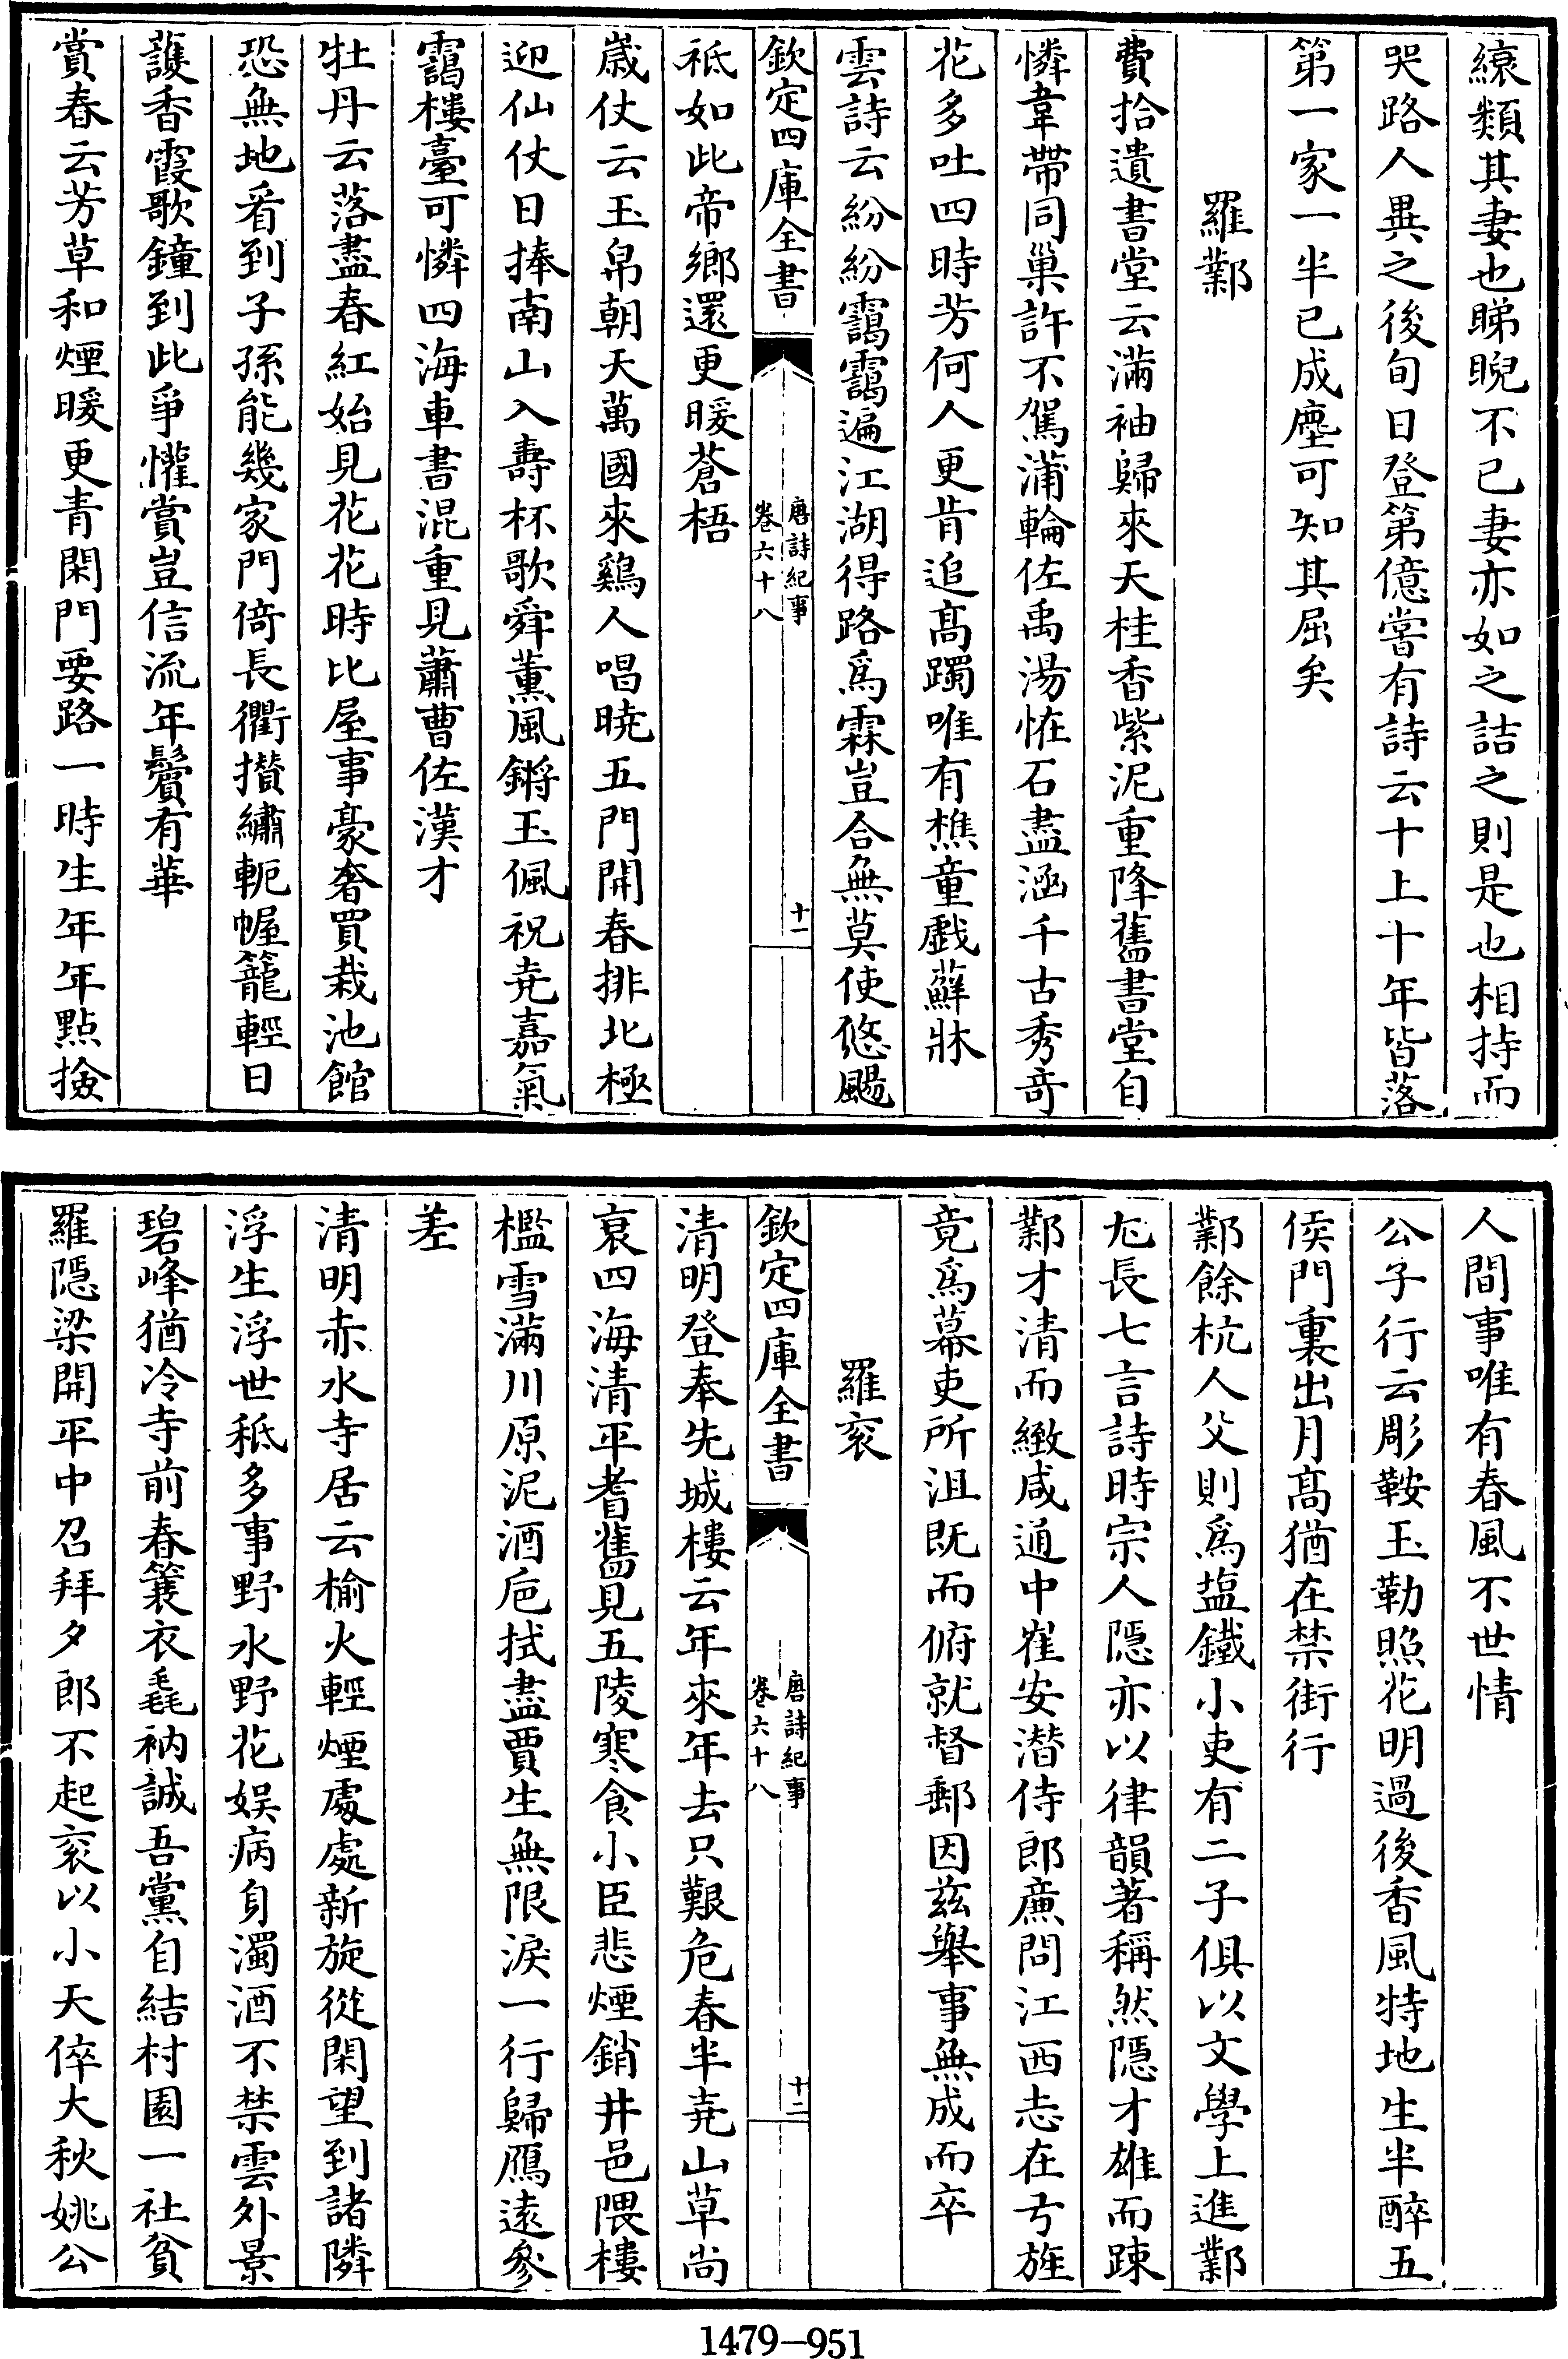 縗類其妻也睇睨不已妻亦如之詰之則是也相持而
哭路人異之後旬日登第億嘗有詩云十上十年皆落
第一家一半已成塵可知其屈矣
羅鄴
費拾遺書堂云滿袖歸來天桂香紫泥重降舊書堂自
憐韋帶同巢許不駕蒲輪佐禹湯怪石盡涵千古秀竒
花多吐四時芳何人更肯追髙躅唯有樵童戲蘚牀
雲詩云紛紛靄靄遍江湖得路爲霖豈合無莫使悠颺
欽定四庫全書
唐詩紀事
卷六十八
十一
祗如此帝鄉還更暖蒼梧
嵗仗云玉帛朝天萬國來鷄人唱暁五門開春排北極
迎仙仗日捧南山入壽杯歌舜薫風鏘玉佩祝堯嘉氣
靄樓臺可憐四海車書混重見蕭曹佐漢才
牡丹云落盡春紅始見花花時比屋事豪奢買栽池館
恐無地看到子孫能幾家門倚長衢攅繡軛幄籠輕日
護香霞歌鐘到此爭懽賞豈信流年鬢有華
賞春云芳草和煙暖更青閑門要路一時生年年點撿
人間事唯有春風不世情
公子行云彫鞍玉勒照花明過後香風特地生半醉五
侯門裏出月髙猶在禁街行
鄴餘杭人父則爲塩鐵小吏有二子俱以文學上進鄴
尤長七言詩時宗人隱亦以律韻著稱然隱才雄而踈
鄴才清而緻咸通中崔安潜侍郎廉問江西志在弓旌
竟爲幕吏所沮既而俯就督郵因茲舉事無成而卒
羅衮
欽定四庫全書
唐詩紀事
卷六十八
十二
清明登奉先城樓云年來年去只艱危春半堯山草尚
衰四海清平耆舊見五陵寒食小臣悲煙銷井邑隈樓
檻雪滿川原泥酒巵拭盡賈生無限淚一行歸鴈遠參
差
清明赤水寺居云榆火輕煙處處新旋從閑望到諸隣
浮生浮世秪多事野水野花娱病身濁酒不禁雲外景
碧峰猶冷寺前春簑衣毳衲誠吾黨自結村園一社貧
羅隱梁開平中召拜夕郎不起衮以小天倅大秋姚公
1479—951